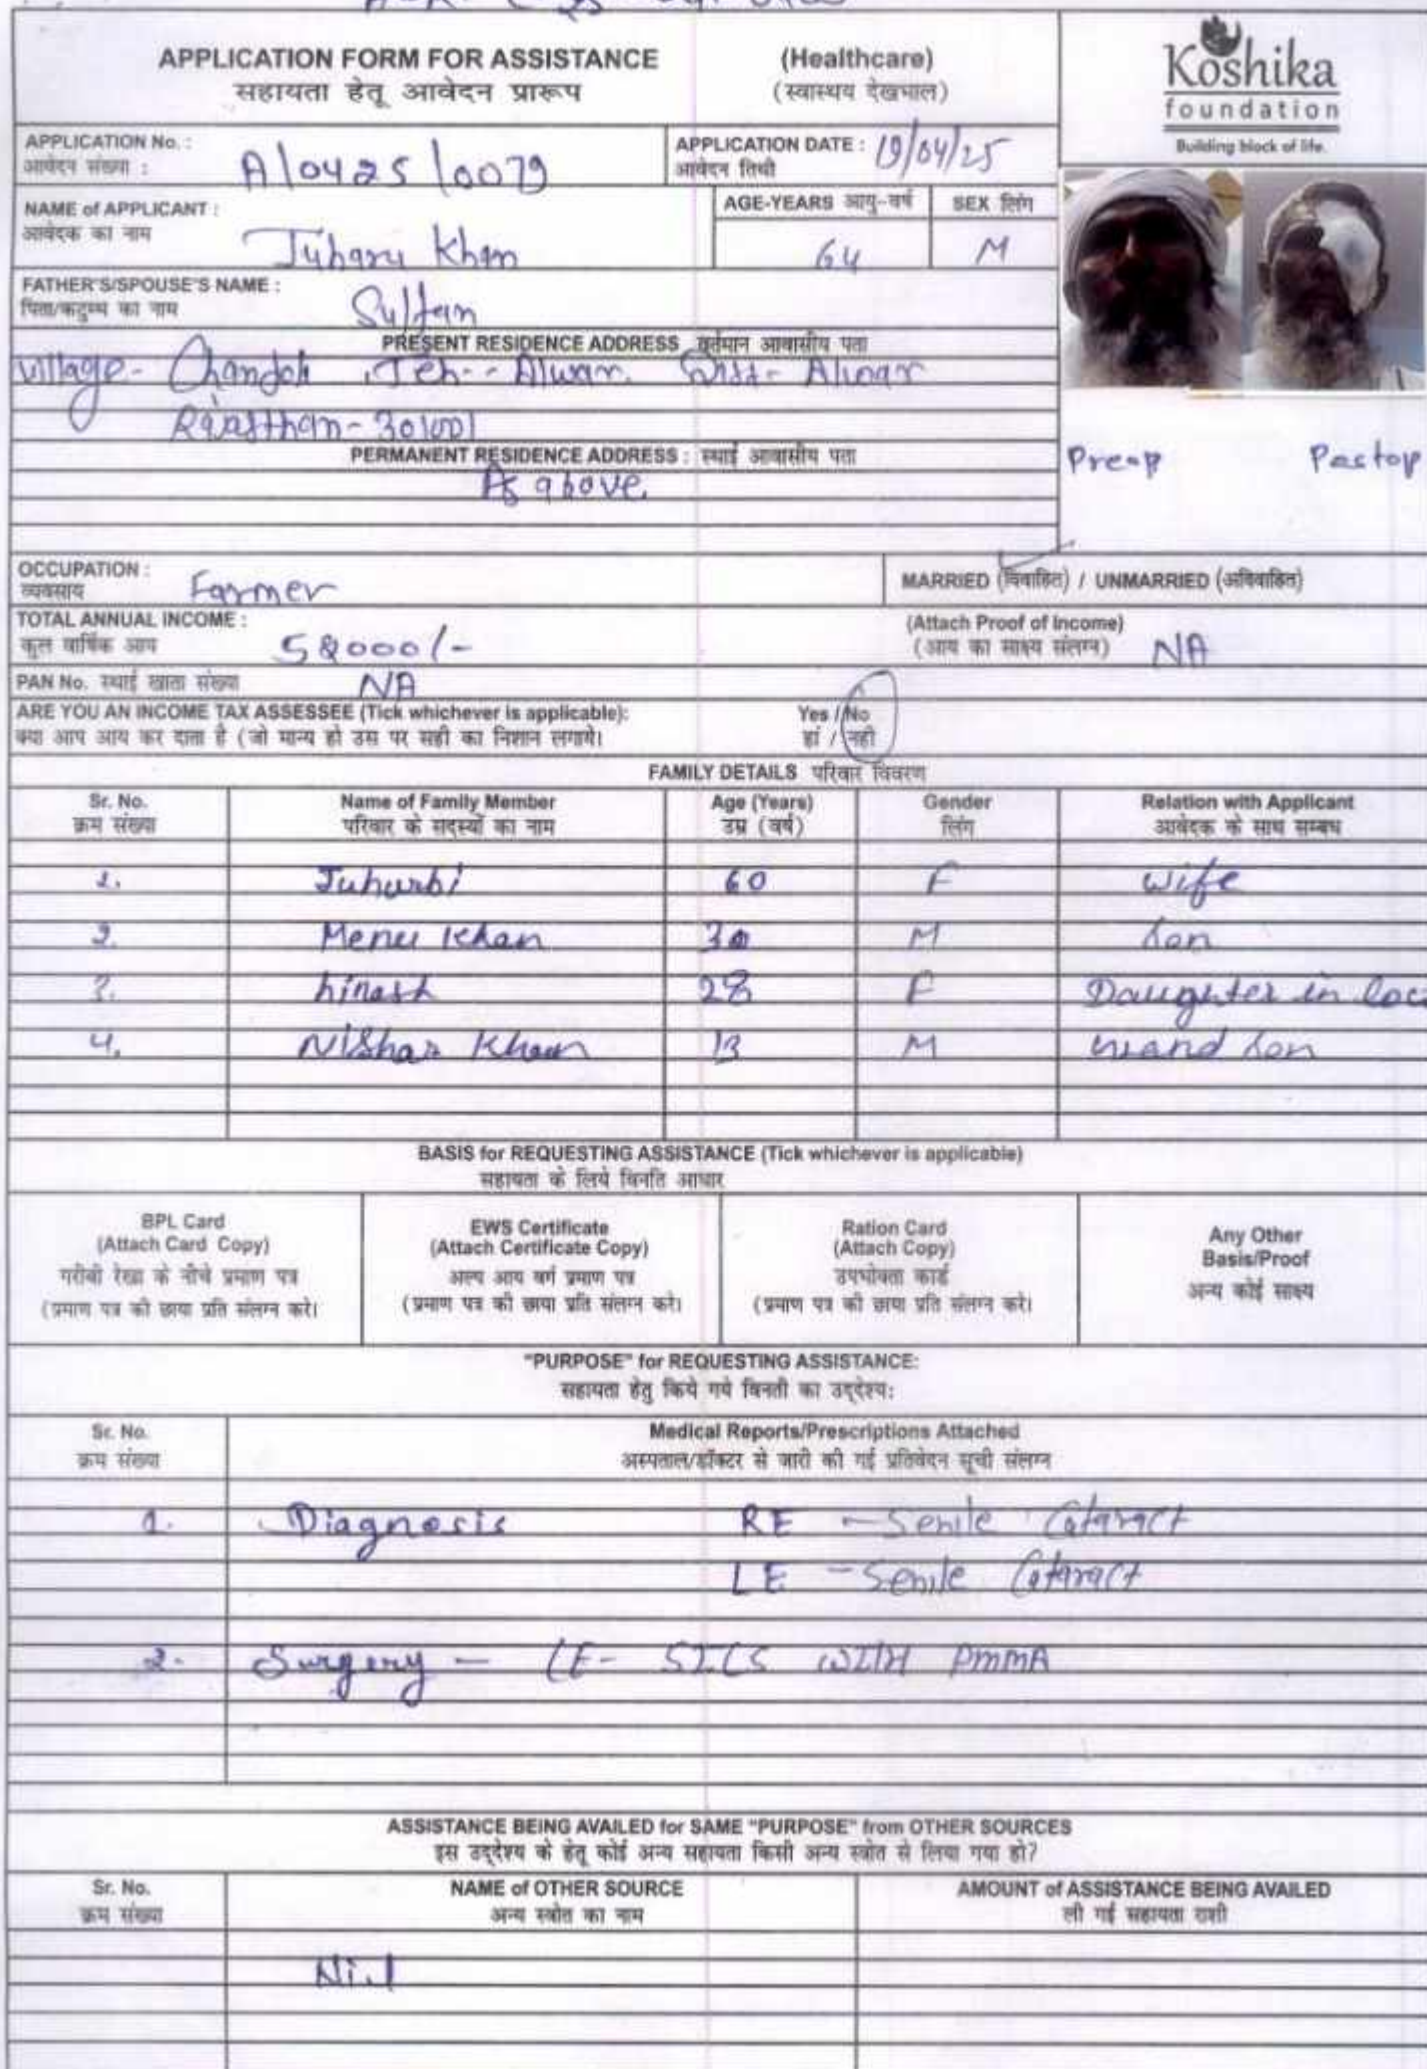 APPLICATION FORM FOR ASSISTANCE
सहायता हेतू आवेदन प्रारूप
(Healthcare)
(स्वास्थय देखभाल)
Koshika
foundation
Building block of life.
APPLICATION No. :
आवेदन संख्या :
A/0425/0079
APPLICATION DATE : 19/04/25
आवेदन तिथी
NAME of APPLICANT :
आवेदक का नाम
Juharu Khan
AGE-YEARS आयु-वर्ष
64
SEX लिंग
M
FATHER'S/SPOUSE'S NAME :
पिता/कटुम्ब का नाम
Sultan
PRESENT RESIDENCE ADDRESS वर्तमान आवासीय पता
Village- Chandoli, Teh-- Alwar. Distt- Alwar
Rajasthan- 301001
PERMANENT RESIDENCE ADDRESS : स्थाई आवासीय पता
As above.
Preop Postop
OCCUPATION :
व्यवसाय
Farmer
MARRIED (विवाहित) / UNMARRIED (अविवाहित)
TOTAL ANNUAL INCOME :
कुल वार्षिक आय
58000/-
(Attach Proof of Income)
(आय का साक्ष्य संलग्न) NA
PAN No. स्थाई खाता संख्या NA
ARE YOU AN INCOME TAX ASSESSEE (Tick whichever is applicable): Yes / No
क्या आप आय कर दाता है (जो मान्य हो उस पर सही का निशान लगाये। हां / नही
FAMILY DETAILS परिवार विवरण
Sr. No. Name of Family Member Age (Years) Gender Relation with Applicant
क्रम संख्या परिवार के सदस्यों का नाम उम्र (वर्ष) लिंग आवेदक के साथ सम्बध
1. Juhurbi 60 F wife
2. Menu Khan 30 M Son
3. 28 F Daughter in
4. Nishar Khan 13 M Grand Son
BASIS for REQUESTING ASSISTANCE (Tick whichever is applicable)
सहायता के लिये विनति आधार
BPL Card
(Attach Card Copy)
गरीबी रेखा के नीचे प्रमाण पत्र
(प्रमाण पत्र की छाया प्रति संलग्न करे।
EWS Certificate
(Attach Certificate Copy)
अल्प आय वर्ग प्रमाण पत्र
(प्रमाण पत्र की छाया प्रति संलग्न करे।
Ration Card
(Attach Copy)
उपभोक्ता कार्ड
(प्रमाण पत्र की छाया प्रति संलग्न करे।
Any Other
Basis/Proof
अन्य कोई साक्ष्य
"PURPOSE" for REQUESTING ASSISTANCE:
सहायता हेतु किये गये विनती का उद्देश्य:
Sr. No. Medical Reports/Prescriptions Attached
क्रम संख्या अस्पताल/डॉक्टर से जारी की गई प्रतिवेदन सूची संलग्न
1. Diagnosis RE - Senile Cataract
LE - Senile Cataract
2. Surgery - LE- SICS WITH PMMA
ASSISTANCE BEING AVAILED for SAME "PURPOSE" from OTHER SOURCES
इस उद्देश्य के हेतू कोई अन्य सहायता किसी अन्य स्त्रोत से लिया गया हो?
Sr. No. NAME of OTHER SOURCE AMOUNT of ASSISTANCE BEING AVAILED
क्रम संख्या अन्य स्त्रोत का नाम ली गई सहायता राशी
Nil